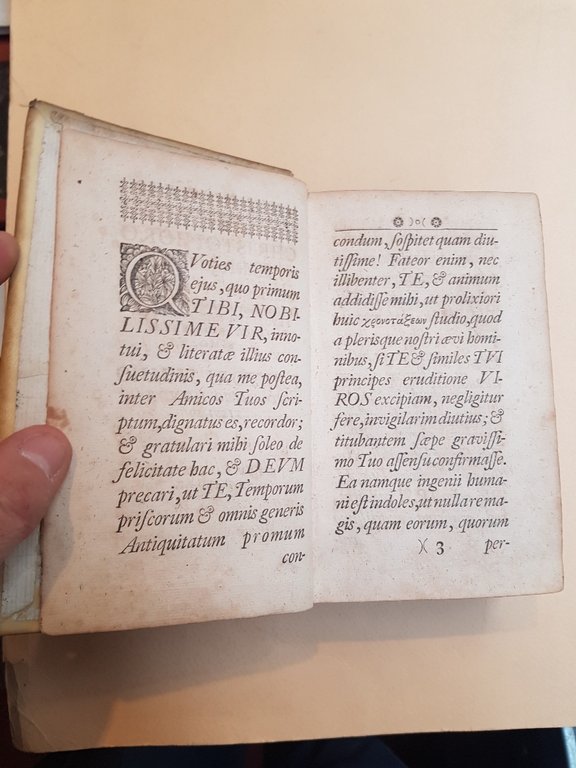 QVoties temporis
ejus, quo primum
TIBI, NOBI-
LISSIME VIR, inno-
tui, & literatæ illius con-
ſuetudinis, qua me poſtea,
inter Amicos Tuos ſcri-
ptum, dignatus es, recordor;
& gratulari mihi ſoleo de
felicitate hac, & DEUM
precari, ut TE, Temporum
priſcorum & omnis generis
Antiquitatum promum
con-
)o(
condum, ſoſpitet quam diu-
tiſſime! Fateor enim, nec
illibenter, TE, & animum
addidiſſe mihi, ut prolixiori
huic χρονοτάξεων ſtudio, quod
a pleriſque noſtri ævi homi-
nibus, ſi TE & ſimiles TUI
principes eruditione VI-
ROS excipiam, negligitur
fere, invigilarim diutius; &
titubantem ſæpe graviſſi-
mo Tuo aſſenſu confirmaſſe.
Ea namque ingenii huma-
ni eſt indoles, ut nulla re ma-
gis, quam eorum, quorum
)( 3 per-